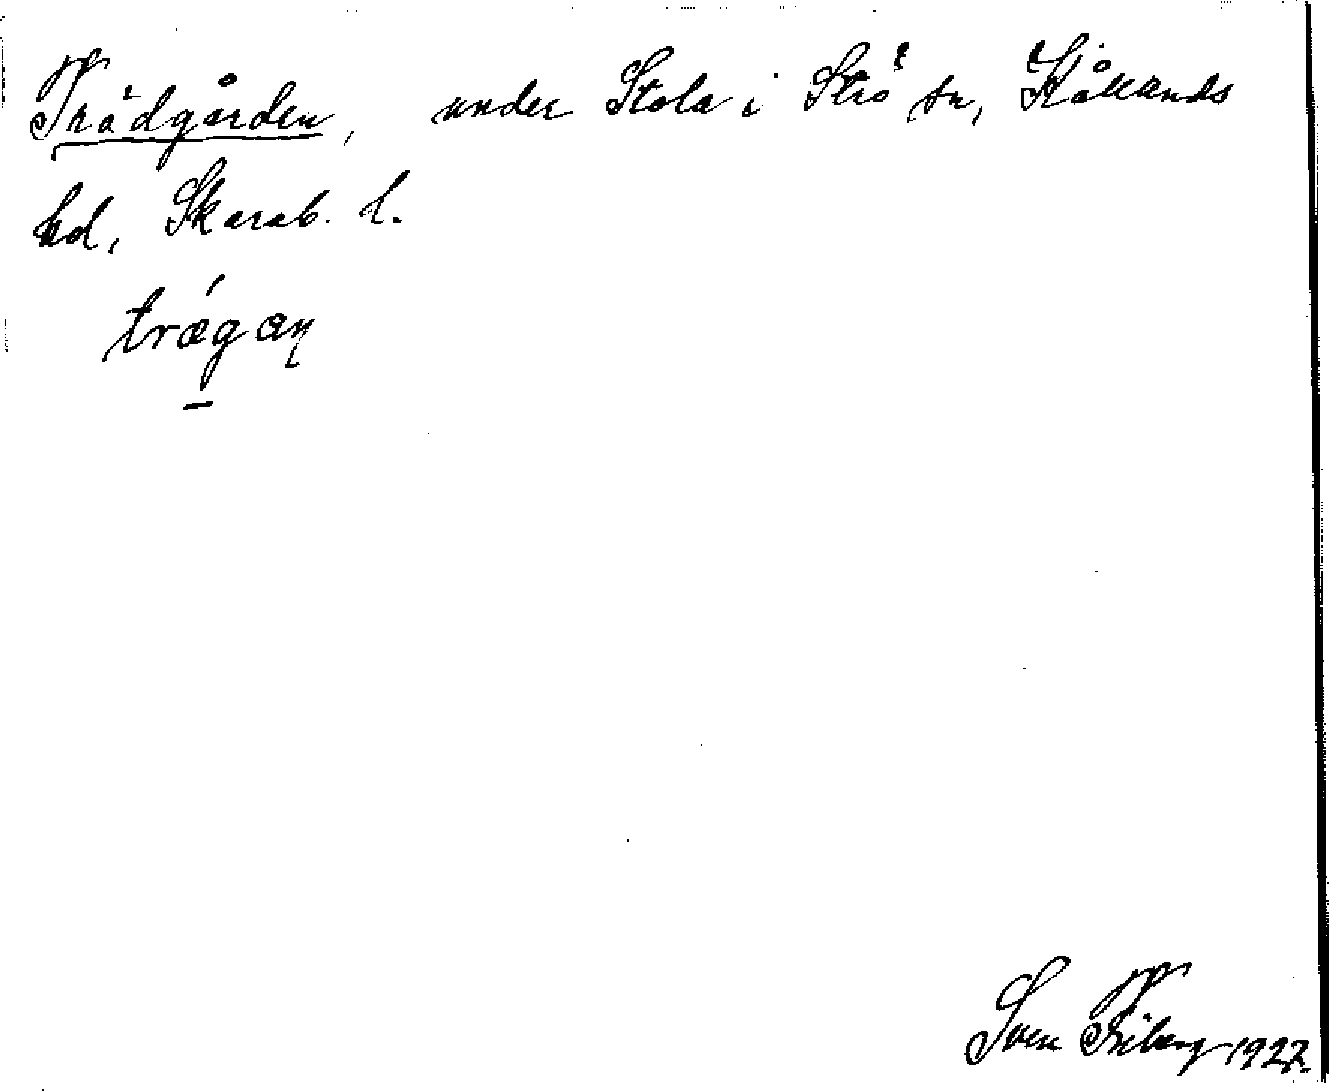 Trädgården, under Stola i Strö sn, Kållands
hd, Skarab. l.
trǽgaɳ
Sven Friberg 1922.